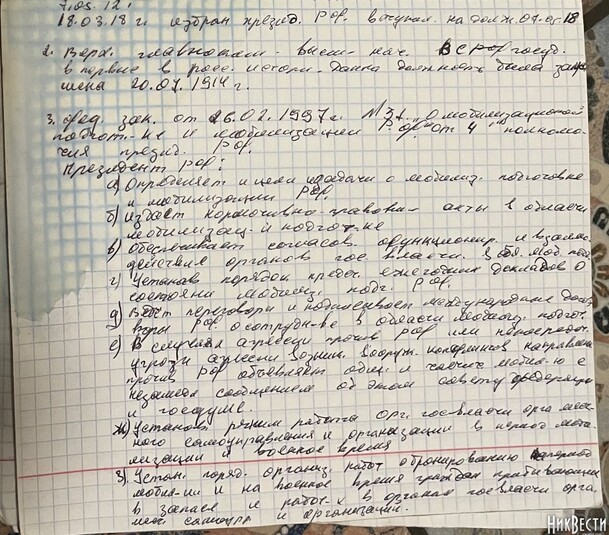 7.05.12 г.
18.03.18 г. избран презид. РФ. вступил на долж. 07.05.18
2. Верх. главноком. - высш. нач. ВС РФ госуд.
впервые в росс. истории данная должность была
20.07.1914 г.
3. Фед. зак. от 26.02.1997 г. N 31 "О мобилизационой
подгот-ке и мобилизации РФ" от 4 полномо-
чия презид. РФ.
Президент РФ:
а) Определяет цели и задачи о мобилиз. подготовке
и мобилизации РФ.
б) издает нормативно-правовы- акты в области
мобилизац-й подгот-ке
в) обеспечивает согласов. функционир. и взаимо
действия органов гос. власти. в обл. моб. подг
г) Установ порядок предс. ежегодных докладов о
состояни мобилиз. подг. РФ.
д) Ведет переговоры и подписывает международные дого
воры РФ о сотруднич-ве в области мобилиз. подгот.
е) В случаях агресси против РФ или непосредст.
угрозы агресси возник. вооруж. конфликтов направлен
против РФ объявляет общ. и частич. мобил-ю с
незамедл сообщением об этом совету федерации
и госдуме.
ж) Установ режим работы орг. гос власти орга мест
ного самоуправления и организации в период моби
лизации и военное время
з) Устан. поряд. организ. работ. о бронированию
мобил-ии и на военное время граждан пребывающих
в запасе и работ-х в органах гос власти орга.
мест. самоупр и организации.
НикВести